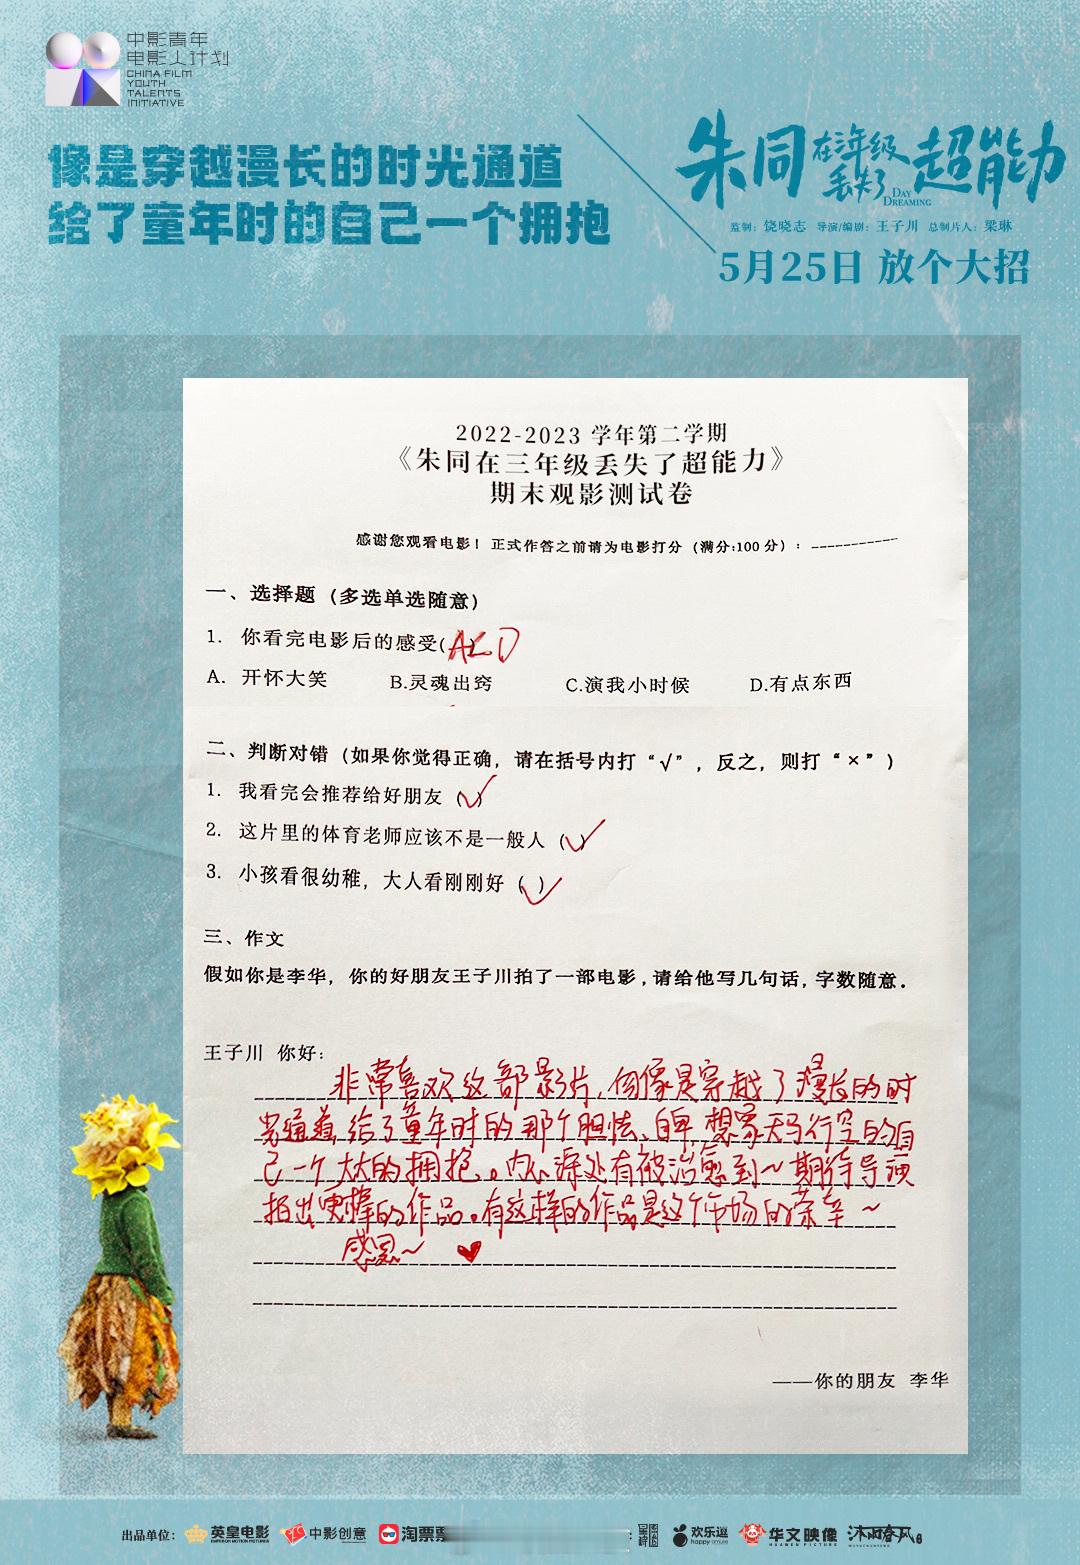 中影青年
电影人计划
CHINA FILM
YOUTH
TALENTS
INITIATIVE
像是穿越漫长的时光通道
给了童年时的自己一个拥抱
朱同在三年级丢失了超能力
DAY
DREAMING
监制：饶晓志 导演/编剧：王子川 总制片人：梁琳
5月25日 放个大招
2022-2023 学年第二学期
《朱同在三年级丢失了超能力》
期末观影测试卷
感谢您观看电影！正式作答之前请为电影打分（满分:100 分）：
一、选择题（多选单选随意）
1. 你看完电影后的感受( ACD
A. 开怀大笑 B.灵魂出窍 C.演我小时候 D.有点东西
二、判断对错（如果你觉得正确，请在括号内打“√”，反之，则打“×”）
1. 我看完会推荐给好朋友（√）
2. 这片里的体育老师应该不是一般人（√）
3. 小孩看很幼稚，大人看刚刚好（√）
三、作文
假如你是李华，你的好朋友王子川拍了一部电影,请给他写几句话,字数随意.
王子川 你好:
非常喜欢这部影片，像是穿越了漫长的时
光通道，给了童年时的那个胆怯、自卑、想象天马行空的自
己一个大大的拥抱。内心深处有被治愈到~期待导演
拍出更棒的作品。有这样的作品是这个市场的荣幸~
感恩~ ♥
——你的朋友 李华
出品单位： 英皇电影 EMPEROR MOTION PICTURES 中影创意 淘票票 欢乐逗 happy amuse 华文映像 HUAWEN PICTURE 沐雨春风